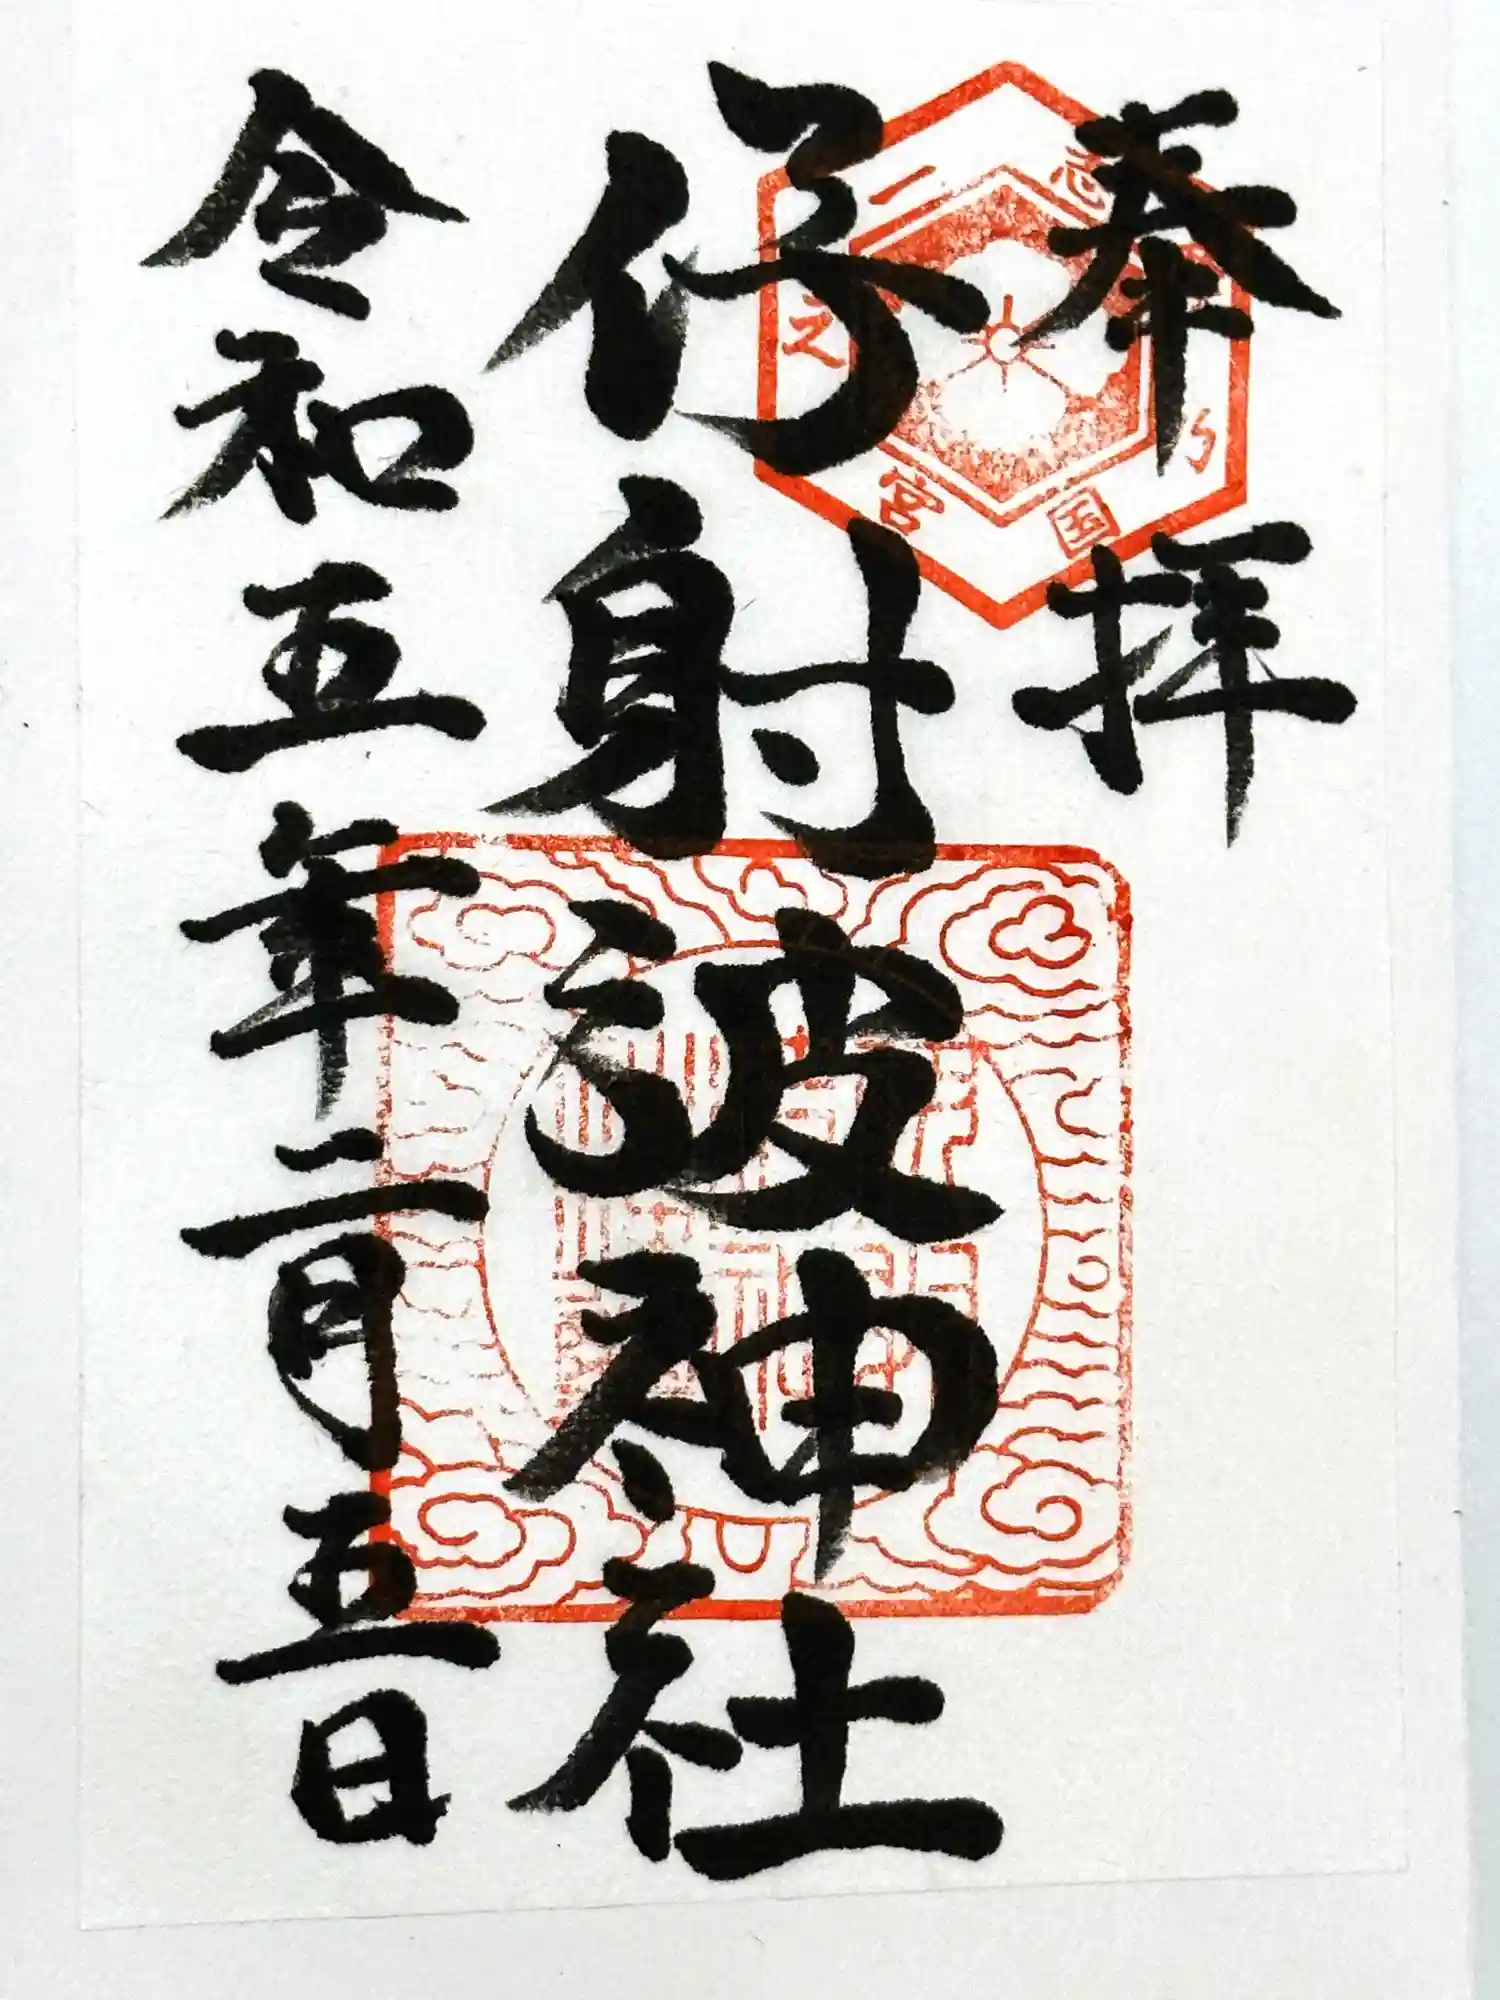 奉拝
志よ国二之宮
伊射波神社
令和五年二月五日